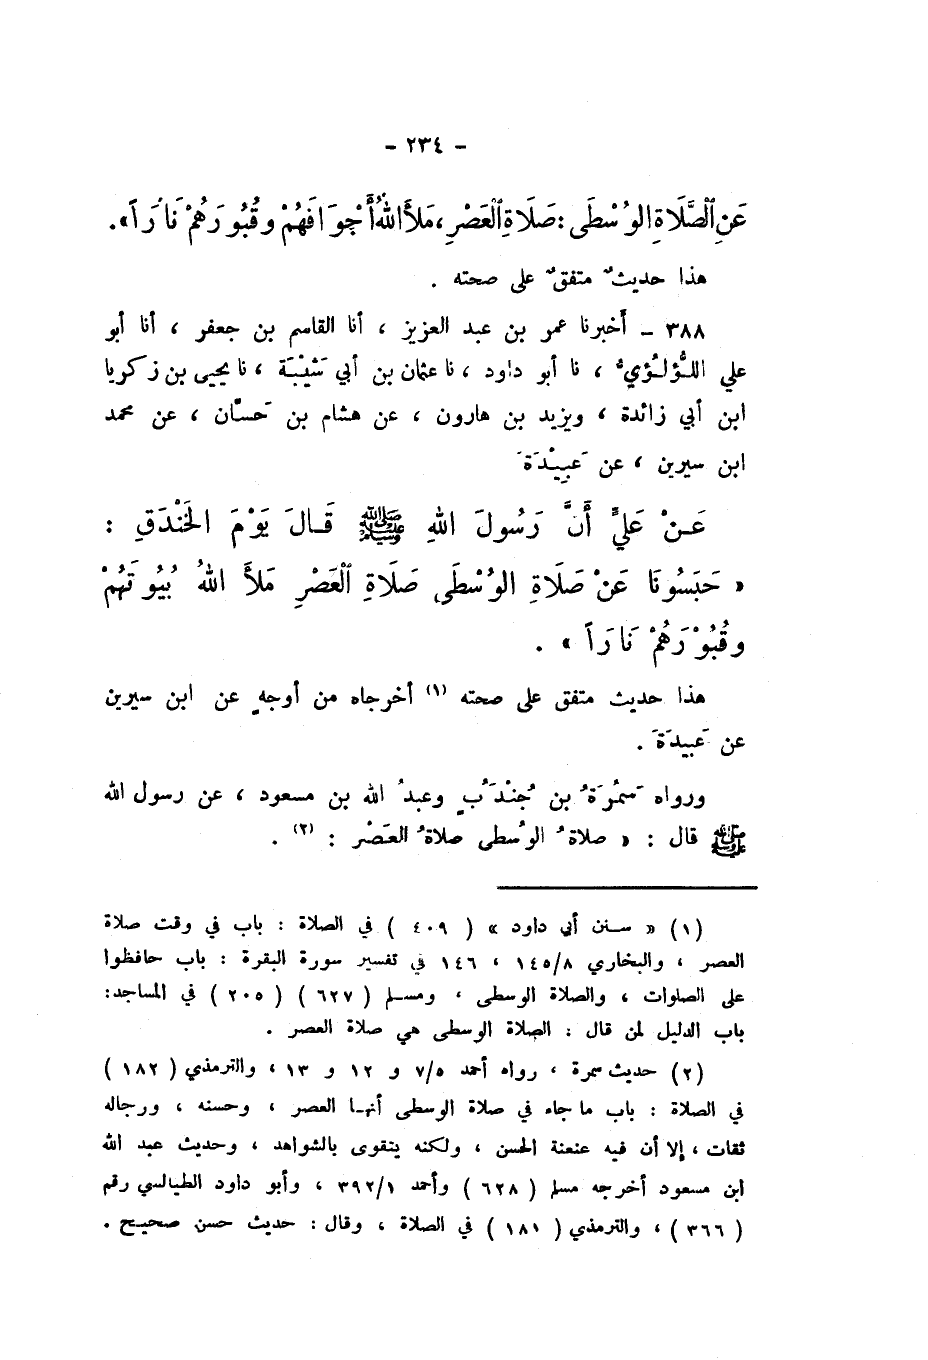 - ٢٣٤ -
عَنِ ٱلصَّلَاةِ الوُسْطَى : صَلَاةِ ٱلْعَصْرِ ، مَلأَ اللهُ أَجْوَافَهُمْ وقُبُورَهُمْ نَارَاً » .
هذا حديثٌ متفقٌ على صحته .
٣٨٨ - أخبرنا عمر بن عبد العزيز ، أنا القاسم بن جعفر ، أنا أبو
علي اللُّؤلُؤيُّ ، نا أبو داود ، نا عثمان بن أبي شَيْبَة ، نا يحيى بن زكريا
ابن أبي زائدة ، ويزيد بن هارون ، عن هشام بن حَسَّان ، عن محمد
ابن سيرين ، عن عَبِيْدَةَ
عَنْ عَليٍّ أَنَّ رَسُولَ اللهِ ﷺ قَالَ يَوْمَ الخَنْدَقِ :
« حَبَسُونَا عَنْ صَلَاةِ الوُسْطَى صَلَاةِ ٱلْعَصْرِ مَلأَ اللهُ بُيُوتَهُمْ
وقُبُوْرَهُمْ نَارَاً » .
هذا حديث متفق على صحته (١) أخرجاه من أوجهٍ عن ابن سيرين
عن عَبيدَةَ .
ورواه سَمُرَةُ بن جُنْدَُبٍ وعبدُ الله بن مسعود ، عن رسول الله
ﷺ قال : « صلاةُ الوُسطى صلاةُ العَصْر : (٢) .
(١) « سنن أبي داود » ( ٤٠٩ ) في الصلاة : باب في وقت صلاة
العصر ، والبخاري ١٤٥/٨ ، ١٤٦ في تفسير سورة البقرة : باب حافظوا
على الصلوات ، والصلاة الوسطى ، ومسلم ( ٦٢٧ ) ( ٢٠٥ ) في المساجد:
باب الدليل لمن قال : الصلاة الوسطى هي صلاة العصر .
(٢) حديث سمرة ، رواه أحمد ٧/٥ و ١٢ و ١٣ ، والترمذي ( ١٨٢ )
في الصلاة : باب ما جاء في صلاة الوسطى أنها العصر ، وحسنه ، ورجاله
ثقات ، إلا أن فيه عنعنة الحسن ، ولكنه يتقوى بالشواهد ، وحديث عبد الله
ابن مسعود أخرجه مسلم ( ٦٢٨ ) وأحمد ٣٩٢/١ ، وأبو داود الطيالسي رقم
( ٣٦٦ ) ، والترمذي ( ١٨١ ) في الصلاة ، وقال : حديث حسن صحيح .